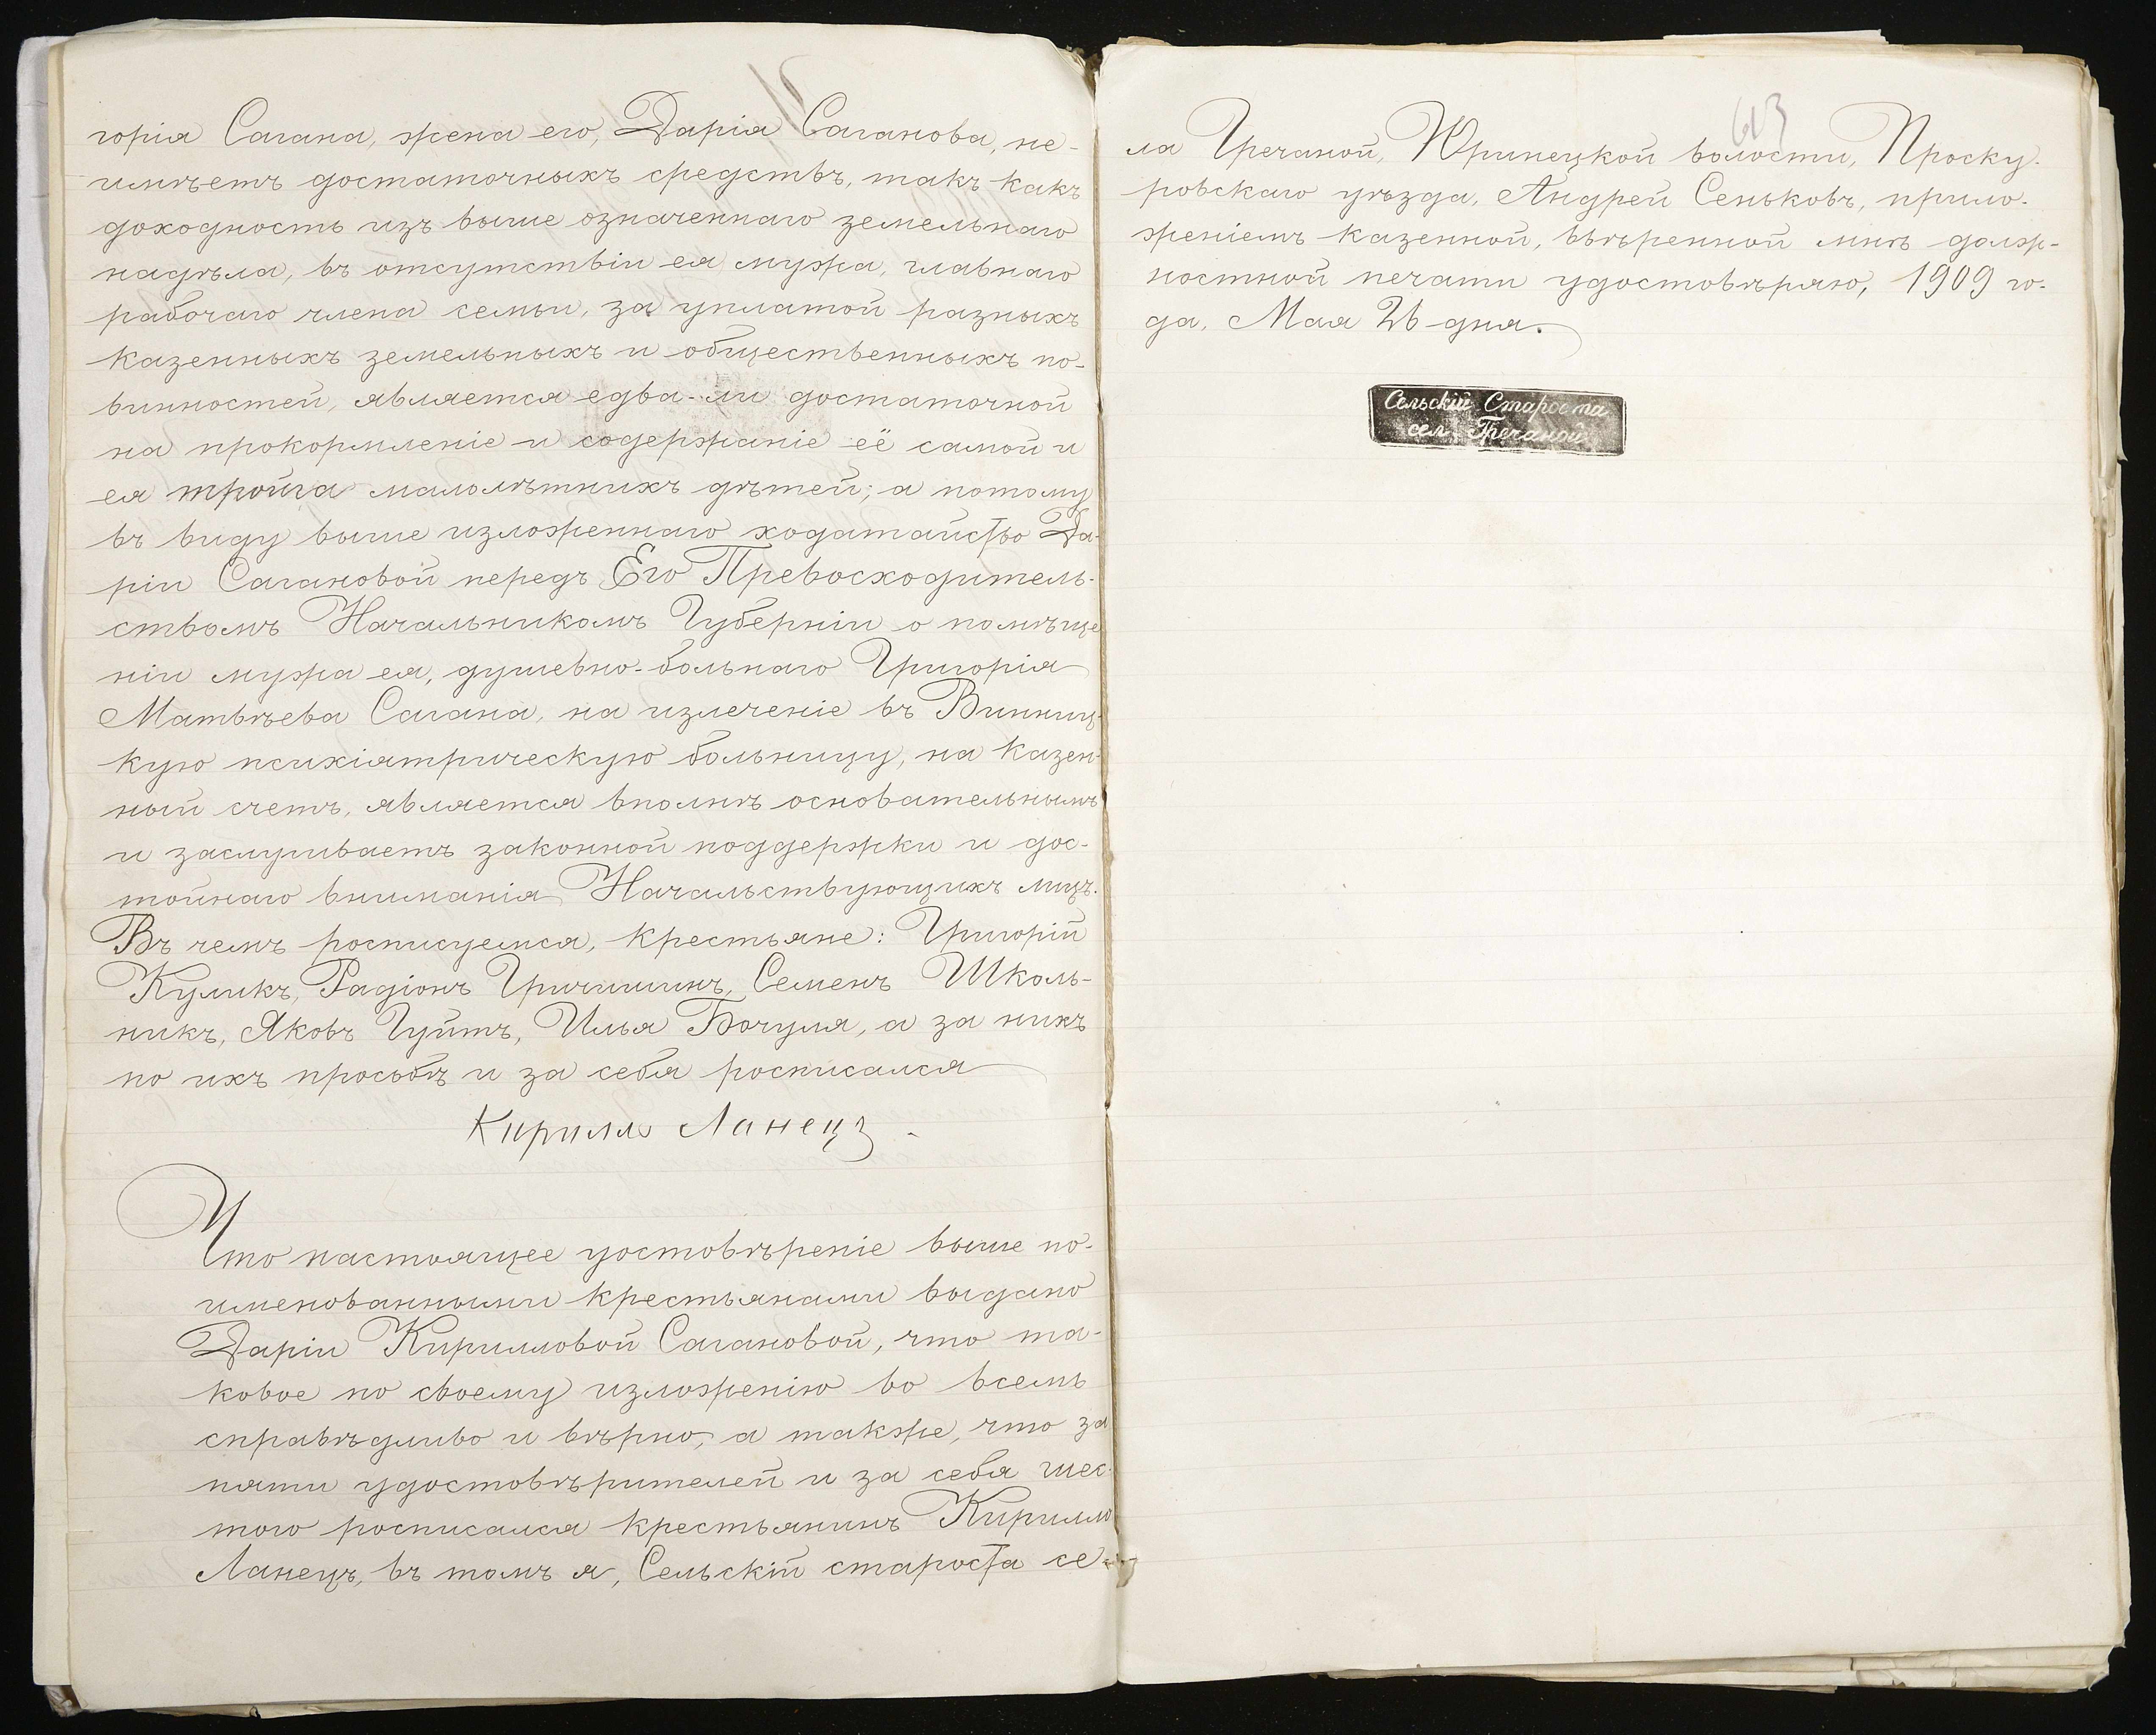 горія Сагана, жена его, Дарія Саганова, не-
имѣетъ достаточныхъ средствъ, такъ какъ
доходность изъ выше означеннаго земельнаго
надѣла, въ отсутствіи ея мужа, главнаго
рабочаго члена семьи, за уплатой разныхъ
казенныхъ земельныхъ и общественныхъ по-
винностей, является едва-ли достаточной
на прокормленіе и содержаніе её самой и
ея тройга малолѣтнихъ дѣтей; а потому
въ виду выше изложеннаго ходатайство Да-
ріи Сагановой передъ Его Превосходитель-
ствомъ Начальникомъ Губерніи о помѣще
ніи мужа ея, душевно-больнаго Григорія
Матвѣева Сагана, на излеченіе въ Винниц-
кую психіатрическую больницу, на казен-
ный счетъ, является вполнѣ основательнымъ
и заслуживаетъ законной поддержки и дос-
тойнаго вниманія Начальствующихъ лицъ.
Въ чемъ росписуемся, крестьяне: Григорій
Куликъ, Радіонъ Гричишинъ, Семенъ Школь-
никъ, Яковъ Гуйтъ, Илья Бочуля, а за нихъ
по ихъ просьбѣ и за себя росписался
Кирилло Ланецъ
Что настоящее удостовѣреніе выше по-
именованными крестьянами выдано
Даріи Кирилловой Сагановой, что та-
ковое по своему изложенію во всемъ
справѣдливо и вѣрно, а также, что за
пяти удостовѣрителей и за себя шес-
того росписался крестьянинъ Кирилло
Ланецъ, въ томъ я, Сельскій староста се-
613
ла Гречаной, Юринецкой волости, Проску-
ровскаго уѣзда, Андрей Сеньковъ, прило-
женіемъ казенной, ввѣренной мнѣ долж-
ностной печати удостовѣряю, 1909 го-
да, Мая 26 дня.
Сельскій Староста
сел. Гречаной